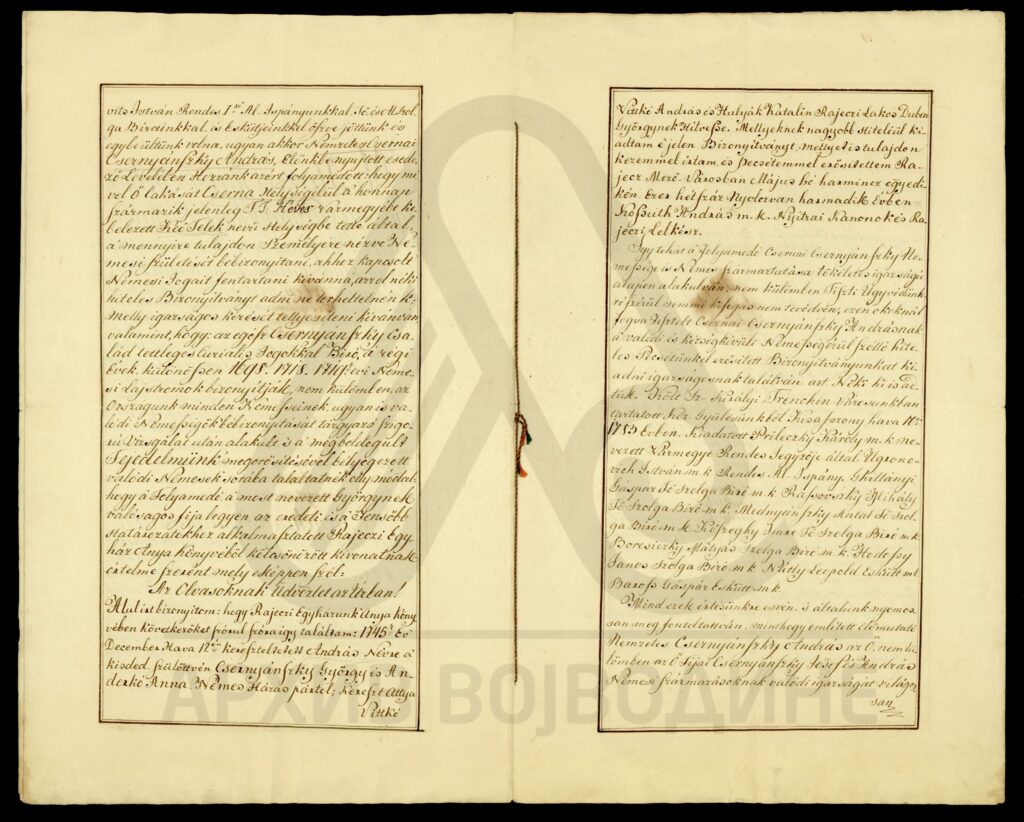 vits István Rendes 1ső Al Ispányunkkal Fő és Al Szol
ga Biráinkkal, és Eskütjeinkkel öszve jöttünk és
egybe ültünk volna, ugyan akkor Nemzetes Csernai
Csernyánszky András, Elénkbe nyujtott esede
ző Levelében Hozzánk azért folyamodott, hogy mi
vel Ő lakását Cserna Helységéből a honnan
származik jelenleg T. T. Heves vármegyébe ke
belezett Kál Telek nevű Helységbe tette által,
á mennyire tulajdon Személyére nézve Ne
mesi születését bébizonyítani, ahhoz kapcsolt
Nemesi Jogait fentartani kívánná, arról néki
hiteles Bizonyítványt adni ne terheltetnénk
melly igazságos kérését tellyesíteni kívánván
valamint, hogy: az egész Csernyánszky Csa
lád tettleges Curialis Jogokkal Biró, á régi
Évek, különössen 1698. 1718. 1749. évi Neme
si Lajstromok bizonyitják, nem külömben az
Országunk minden Nemesseinek, ugyan is va
lódi Nemességök bébizonyítását tárgyazó szigo
rú Vizsgálat után alakult is á megboldogúlt
Fejedelmünk megerősítésével bélyegezett
valódi Nemesek sorába találtatnék olly módal,
hogy á Folyamodó á most nevezett Györgynek
valóságos fija legyen az eredeti és á Felsőbb
statútiozatokhoz alkalmaztatott Rajeczi Egy
ház Anya könyvéből kölcsönözött kivonatnak
értelme szerént mely eképpen szól:
Az Olvasoknak Üdvözlet az Úrban!
Alulirt bizonyitom: hegy Rajeczi Egyharunk Anya köny
vében következerőket szórul szóra így találtam: 1745. Év
December Hava 12én kereszteltetett András Névre á
kisded, szülöttvén Csernyánszky György és An
derkó Anna, Nemes Háras pártol; Kereszt Attya
Vittkó
Vittkó András és Hulyák Katalin Rajeczi Lakos Duben
Györgynek Hitvesse. Mellyeknek nagyobb Hiteléül ki
adtam é jelen Bizonyítványt, mellyet is tulajdon
kezemmel irtam, és Pecsétemmel erősítettem Ra
jecz Mező Városban Május hó harmincz egyedi
kén. Ezer hétszáz Nyolczvan harmadik Évben
Kossuth András m. k. Nyitrai Kanonok és Ra
jeczi Lelkész.
Igy tehát á Folyamodó Csernai Csernyánszky Ne
messége és Nemes származtatása tökéletes igazságú
alapon alakulván, nem külömben Tiszti Ügyvédünk
részérűl semmi kifogás nem tevődvén, ezen okoknál
fogva Tisztelt Csernai Csernyánszky Andrásnak
á valódi és kétségkívüli Nemességérűl szólló hite
les Pecsétünkel erősített Bizonyítványunkat ki
adni igazságosnak találtván, azt Néki ki is ad
tuk. Költ Sz. Királyi Trenchin Városunkban
tartatott Köz Gyűlésünkből Kisasszony hava 11én
1783 Évben. Kiadatott Prileczky Károly m. k. ne
vezett Vármegye Rendes Jegyzője által. Ugrono
vich István m. k. Rendes Al Ispány. Ghillányi
Gáspár Fő Szolga Biró m. k. Rássovszky Mihály
Fő Szolga Biró m. k. Mednyánszky Antal Fő Szol
ga Biró m. k. Kösseghy Imre Fő Szolga Biró m. k.
Borcsiczky Mátyás Szolga Biró m. k. Hodossy
János Szolga Biró m. k. Nittly Leopold Eskütt m.k.
Baross Gáspár Eskütt m. k.
Mind ezek értésünkre esvén, is általunk nyomos
san meg fontoltatván, minthogy említett elömutató
Nemzetes Csernyánszky András az Ő, nem kü
lömben az Ő Fijai Csernyánszky József és András
Nemesi származásoknak valódi igazságát világos
san
АРХИВ ВОЈВОДИНЕ